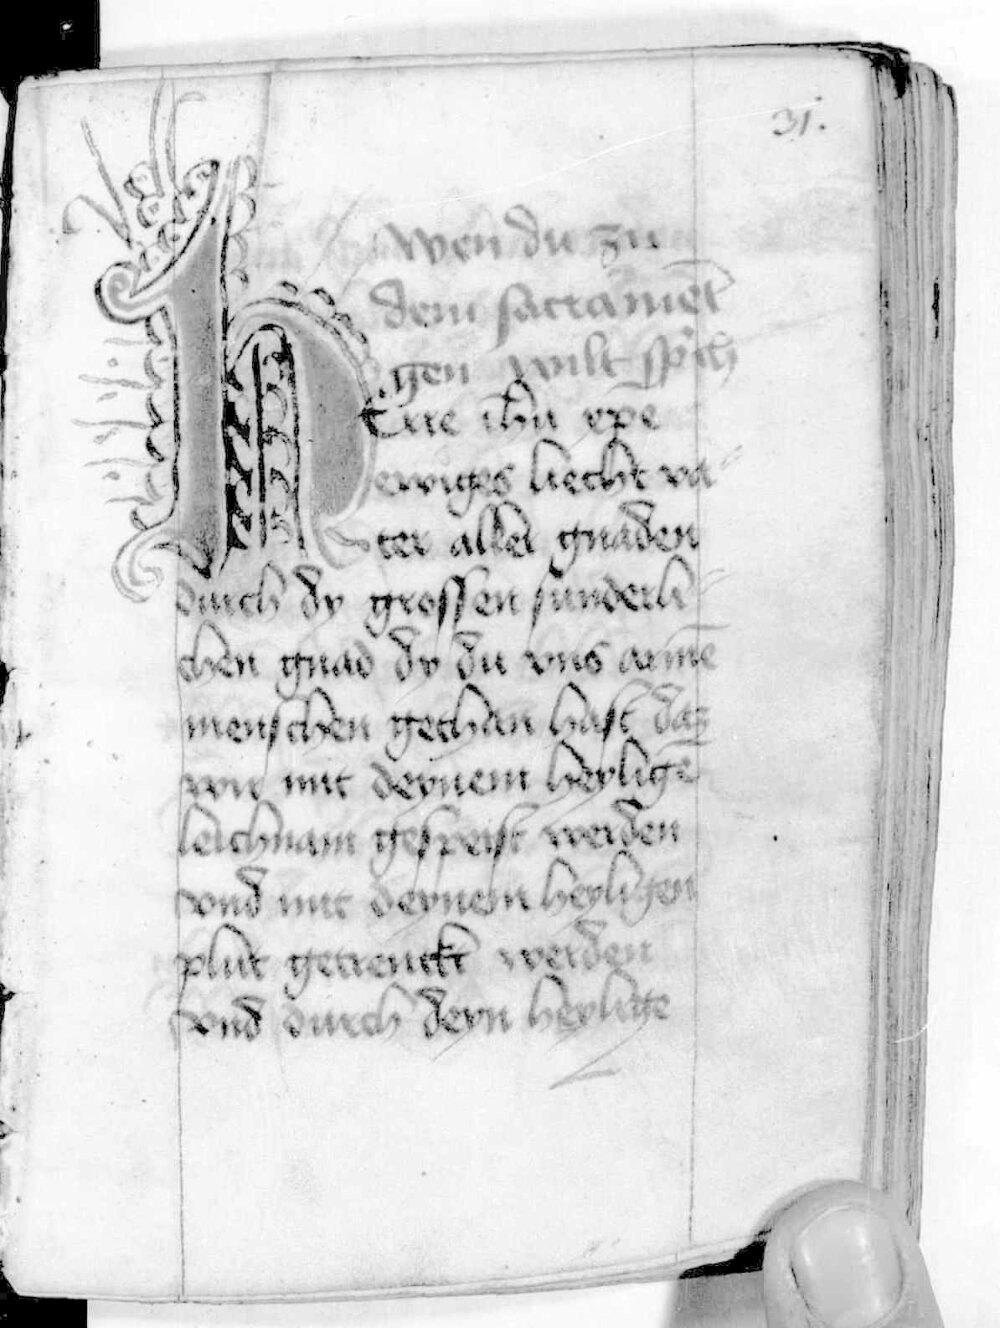 31.
Wen du zu
dem sacramēt
gen wilt sprich
hErre ihu xp̄e
ewiges liecht va
ter aller gnaden
durch dy grossen sunderli
chen gnad dy du vns armē
menschen gethan hast das
wir mit deynem heyligē
leichnam gespeist werden
vnd mit deynem heyligen
plut getrenckt werden
vnd durch deyn heylige